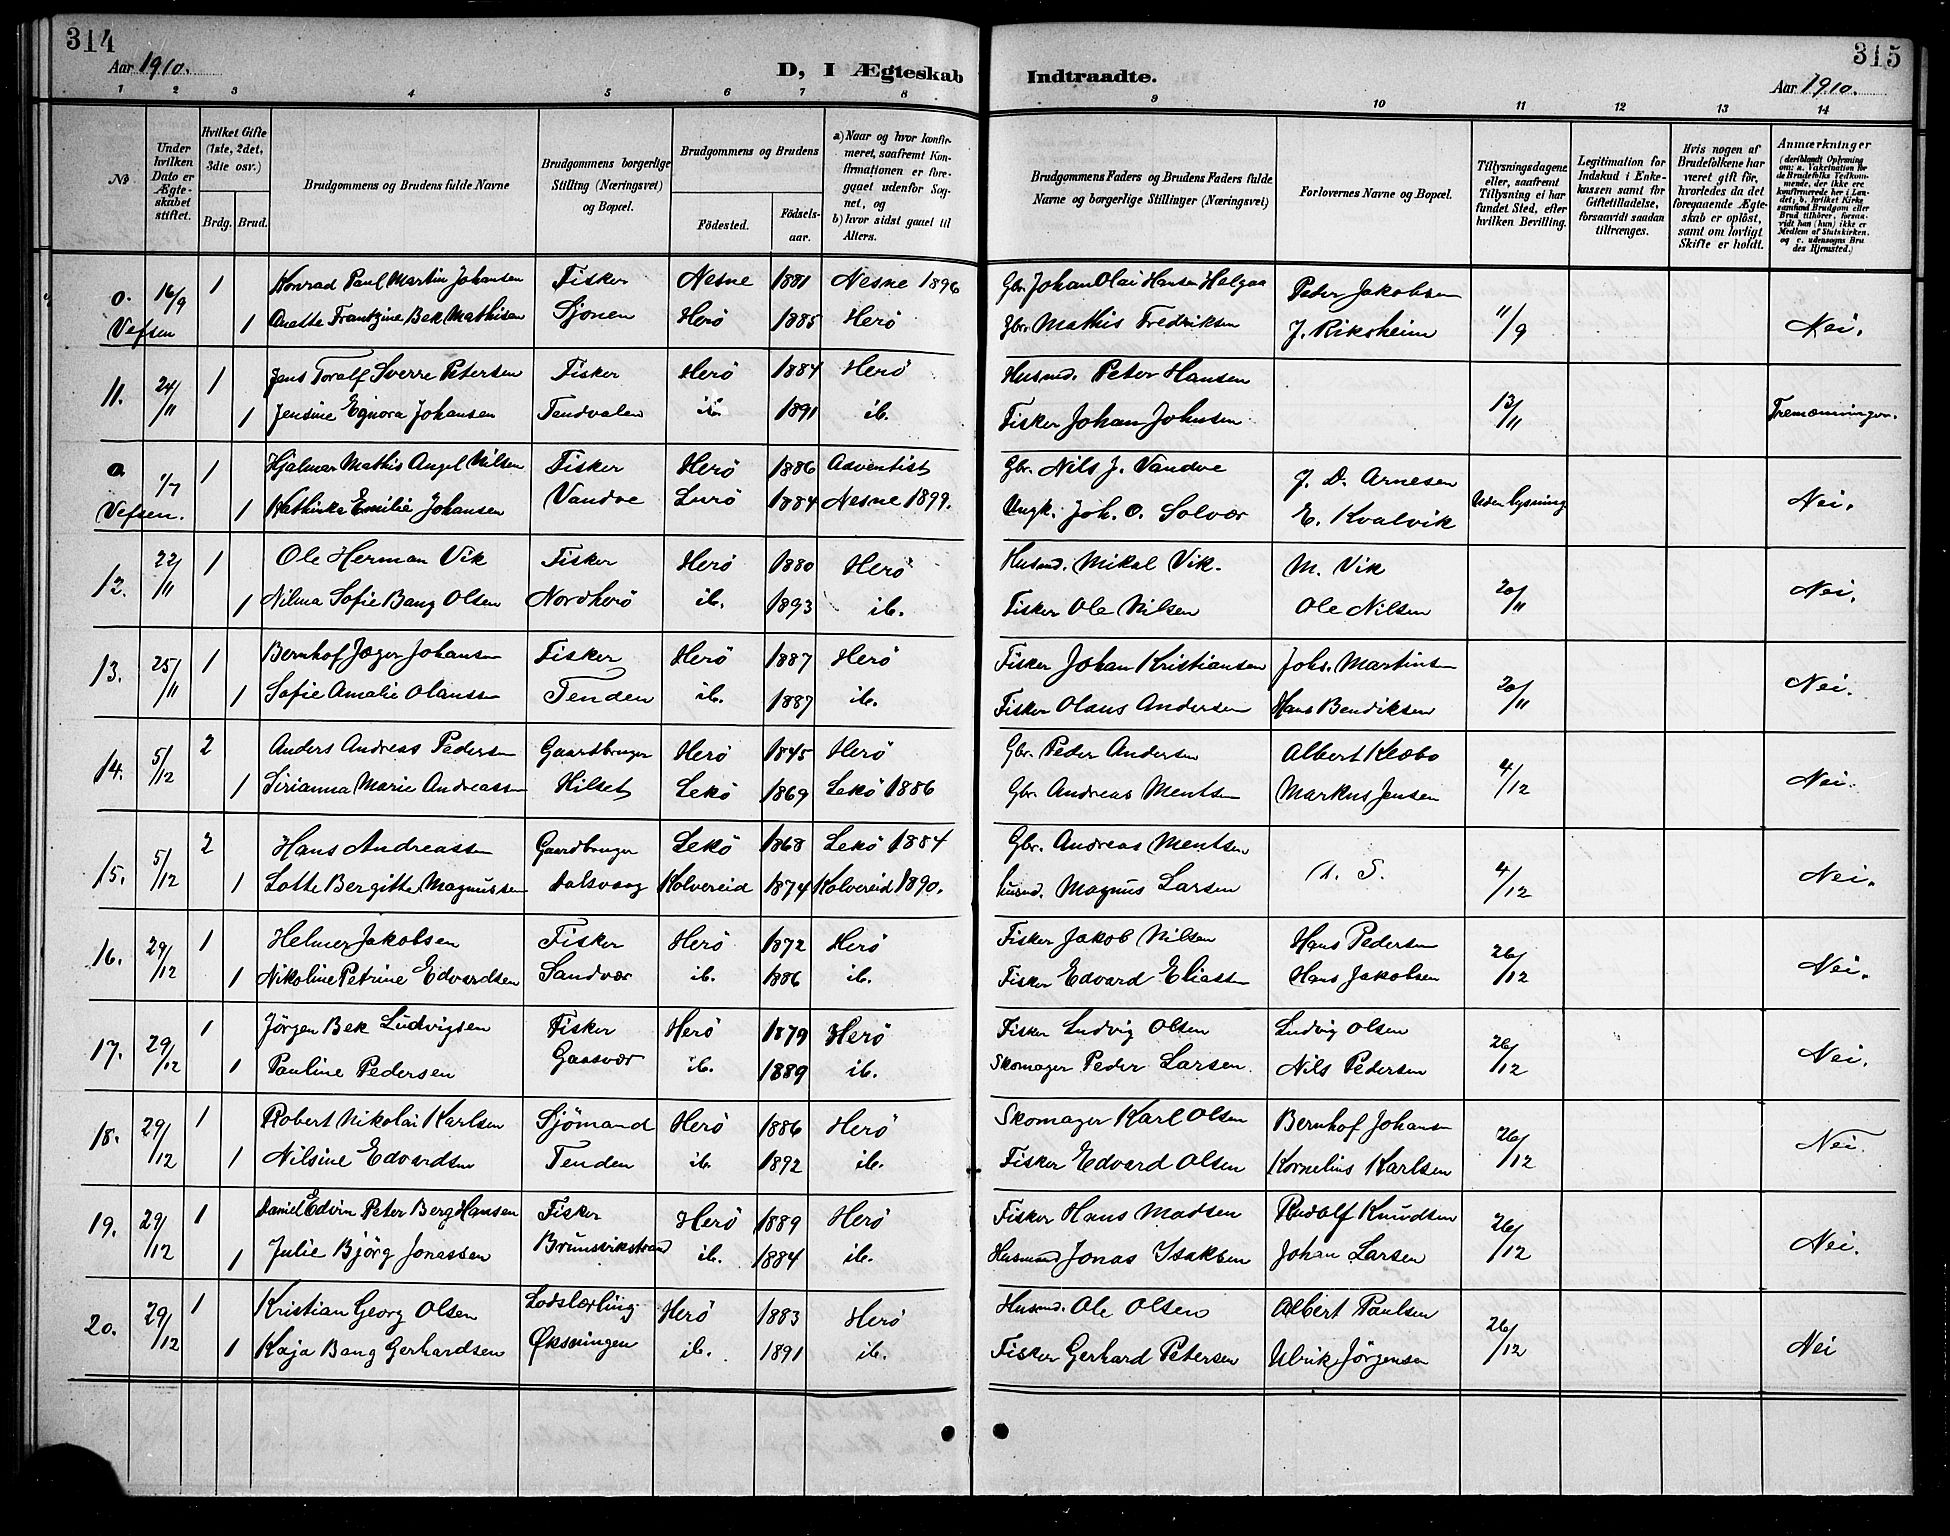 314
Aar 1910.
D, I Ægteskab Indtraadte.
315
Aar 1910.
1 2 3 4 5 6 7 8 9 10 11 12 13 14
No
Under hvilken Dato er Ægteskabet stiftet.
Hvilket Gifte (1ste, 2det, 3die osv.)
Brdg. Brud.
Brudgommens og Brudens fulde Navne
Brudgommens borgerlige Stilling (Næringsvei) og Bopæl.
Brudgommens og Brudens
Fødested.
Fødselsaar.
a) Naar og hvor konfirmeret, saafremt Konfirmationen er foregaaet udenfor Sognet, og
b) hvor sidst gaaet til Alters.
Brudgommens Faders og Brudens Faders fulde Navne og borgerlige Stillinger (Næringsvei)
Forlovernes Navne og Bopæl.
Tillysningsdagene eller, saafremt Tillysning ei har fundet Sted, efter hvilken Bevilling.
Legitimation for Indskud i Enkekassen samt for Giftetilladelse, forsaavidt saadan tiltrænges.
Hvis nogen af Brudefolkene har været gift før, hvorledes da det foregaaende Ægteskab er opløst, samt om lovligt Skifte er holdt.
Anmærkninger
(deriblandt Oplysning om: a. Vakcination for de Brudefolks Vedkommende, der ikke ere konfirmerede her i Landet; b. hvilket Kirkesamfund Brudgom eller Brud tilhører, forsaavidt han (hun) ikke er Medlem af Statskirken, og c. udensogns Brudes Hjemsted.)
0. 16/9 1 Konrad Paul Martin Johansen Fisker Nesne 1881 Nesne 1896 Gbr. Johan Olai Hansen Helgaa Peter Jakobsen 11/9 Nei.
Vefsen 1 Anette Frantzine Bek Mathisen Sjonen Herö 1885 Herö Gbr. Mathis Fredriksen J. Riksheim
11. 24/11 1 Jens Toralf Sverre Petersen Fisker Herö 1884 Herö Husmd. Peter Hansen 13/11 Tremænninger.
1 Jensine Egnora Johansen Tendvalen ib. 1891 ib. Fisker Johan Johnsen
0 1/7 1 Hjalmar Mathis Angel Nilsen Fisker Herö 1886 Adventist Gbr. Nils J. Vandve J. D. Arnesen Uden lysning Nei.
Vefsen. 1 Kathinka Emilie Johansen Vandve Lurö 1884 Nesne 1899. Ungk. Joh. O. Solvær E. Kvalvik
12. 22/11 1 Ole Herman Vik Fisker Herö 1880 Herö Husmd. Mikal Vik. M. Vik 20/11 Nei.
1 Nilma Sofie Bang Olsen Nordherö ib. 1893 ib. Fisker Ole Nilsen Ole Nilsen
13. 25/11 1 Bernhof Jæger Johansen Fisker Herö 1887 Herö Fisker Johan Kristiansen Johs. Martinsen 20/11 Nei.
1 Sofie Amalie Olaussen Tenden ib. 1887 ib. Fisker Olaus Andersen Hans Bendiksen
14. 5/12 2 Anders Andreas Pedersen Gaardbruger Herö 1845 Herö Gbr. Peder Andersen Albert Klæbo 4/12 Nei.
1 Sirianna Marie Andreassen Hilset Lekö 1869 Lekö 1886 Gbr. Andreas Mentsen Markus Jensen
15. 5/12 2 Hans Andreassen Gaardbruger Lekö 1868 Lekö 1884 Gbr. Andreas Mentsen d. S. 4/12 Nei.
1 Lotte Bergitte Magnussen Dalsvaag Kolvereid 1874 Kolvereid 1890. husmd. Magnus Larsen
16. 29/12 1 Helmer Jakobsen Fisker Herö 1872 Herö Fisker Jakob Nilsen Hans Pedersen 26/12 Nei.
1 Nikoline Petrine Edvardsen Sandvær ib. 1886 ib. Fisker Edvard Eliassen Hans Jakobsen
17. 29/12 1 Jörgen Bek Ludvigsen Fisker Herö 1879 Herö Fisker Ludvig Olsen Ludvig Olsen 26/12 Nei.
1 Pauline Pedersen Gaasvær ib. 1889 ib. Skomager Peder Larsen. Nils Pedersen
18. 29/12 1 Robert Nikolai Karlsen Sjömand Herö 1886 Herö Skomager Karl Olsen Bernhof Johansen 26/12 Nei.
1 Nilsine Edvardsen Tenden ib. 1892 ib. Fisker Edvard Olsen Kornelius Karlsen
19. 29/12 1 Daniel Edvin Peter Berg Hansen Fisker Herö 1889 Herö Fisker Hans Madsen Rudolf Knudsen 26/12 Nei.
1 Julie Bjørg Jonassen Brunsvikstrand ib. 1884 ib. Husmand Jonas Isaksen Johan Larsen
20. 29/12 1 Kristian Georg Olsen Lodslærling Herö 1883 Herö Husmd. Ole Olsen Albert Paulsen 26/12 Nei
1 Kaja Bang Gerhardsen Øksningen ib. 1891 ib. Fisker Gerhard Petersen Ulrik Jörgensen